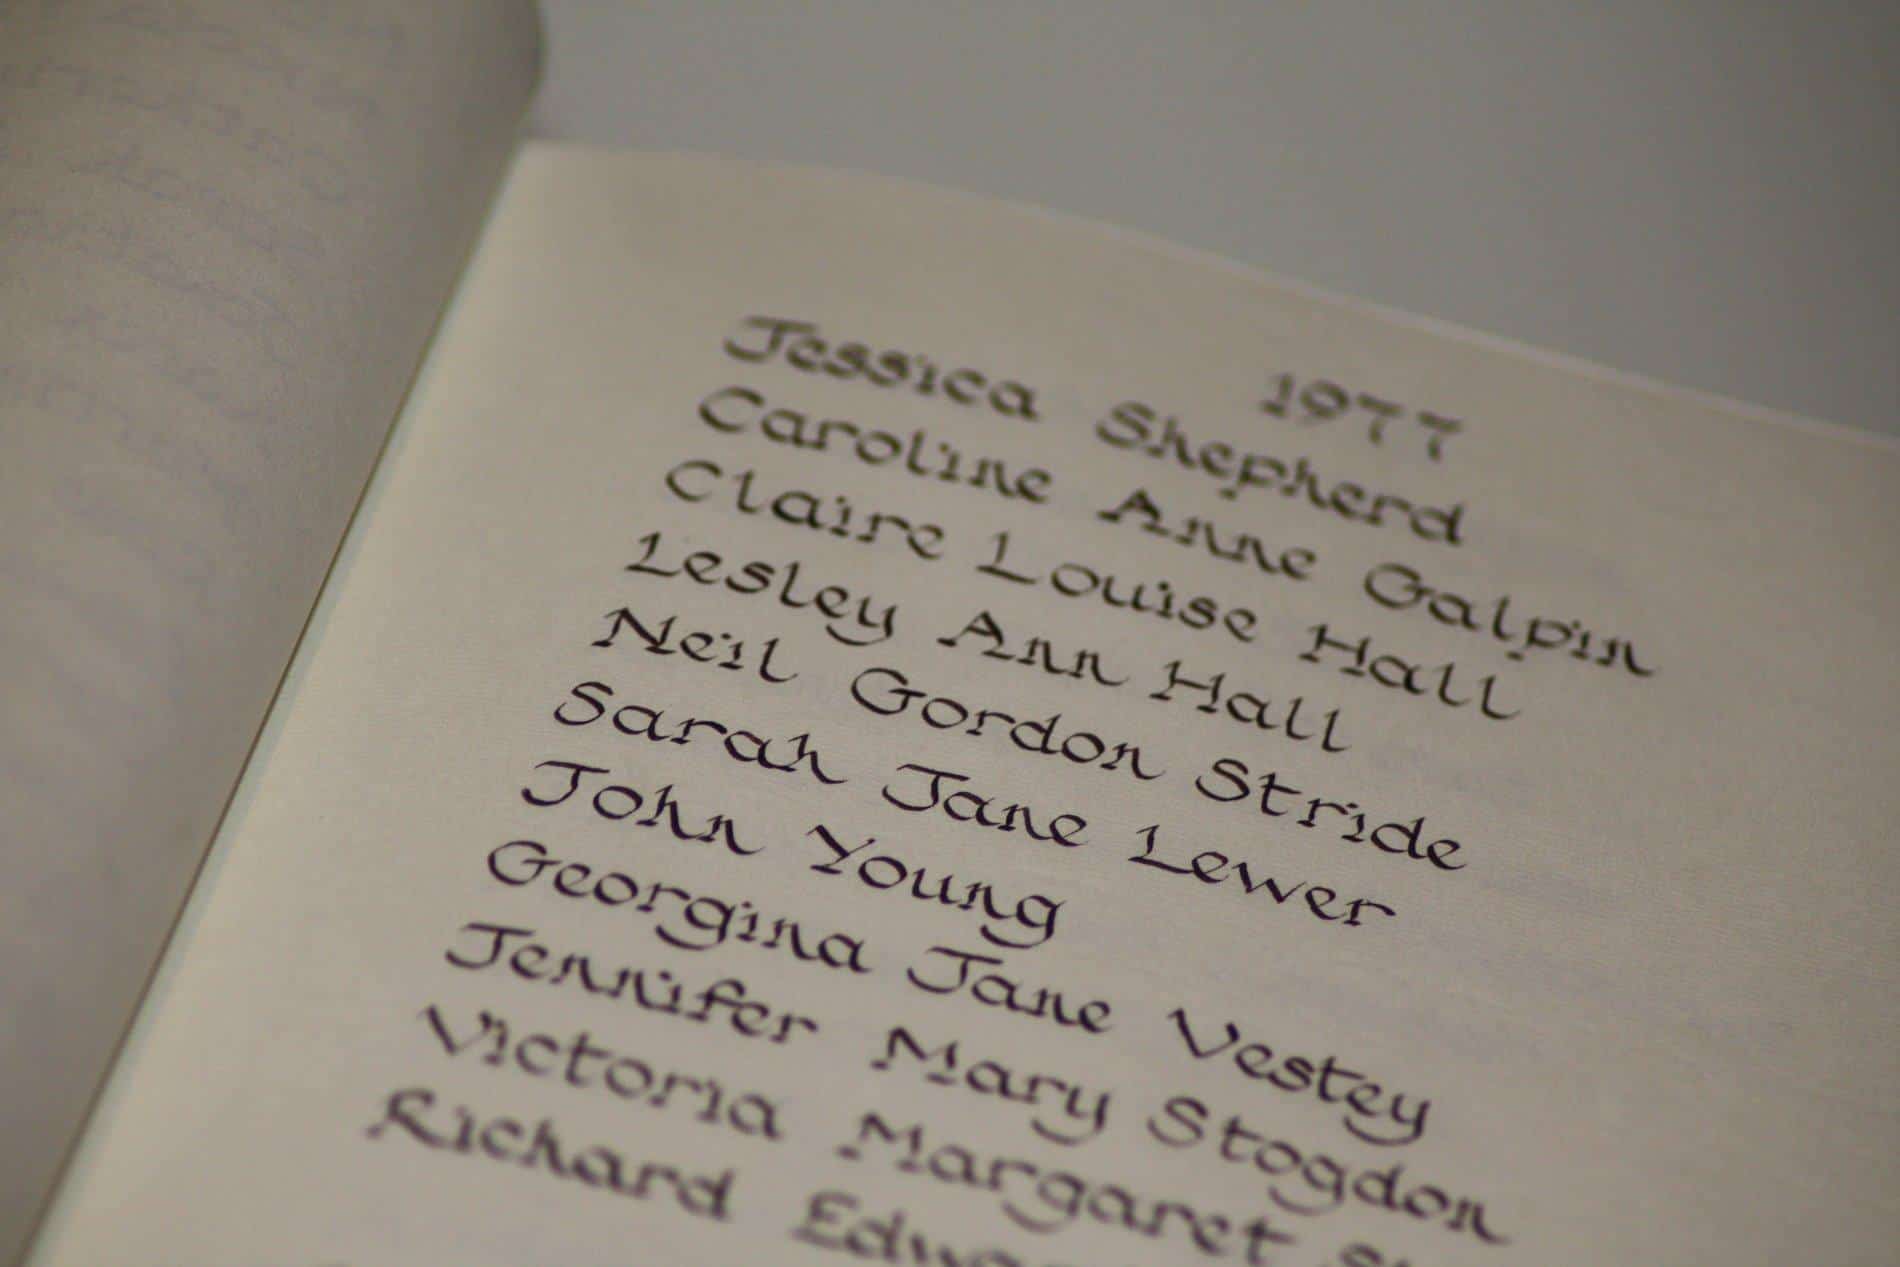 1977
Jessica Shepherd
Caroline Anne Galpin
Claire Louise Hall
Lesley Ann Hall
Neil Gordon Stride
Sarah Jane Lewer
John Young
Georgina Jane Vestey
Jennifer Mary Stogdon
Victoria Margaret
Richard